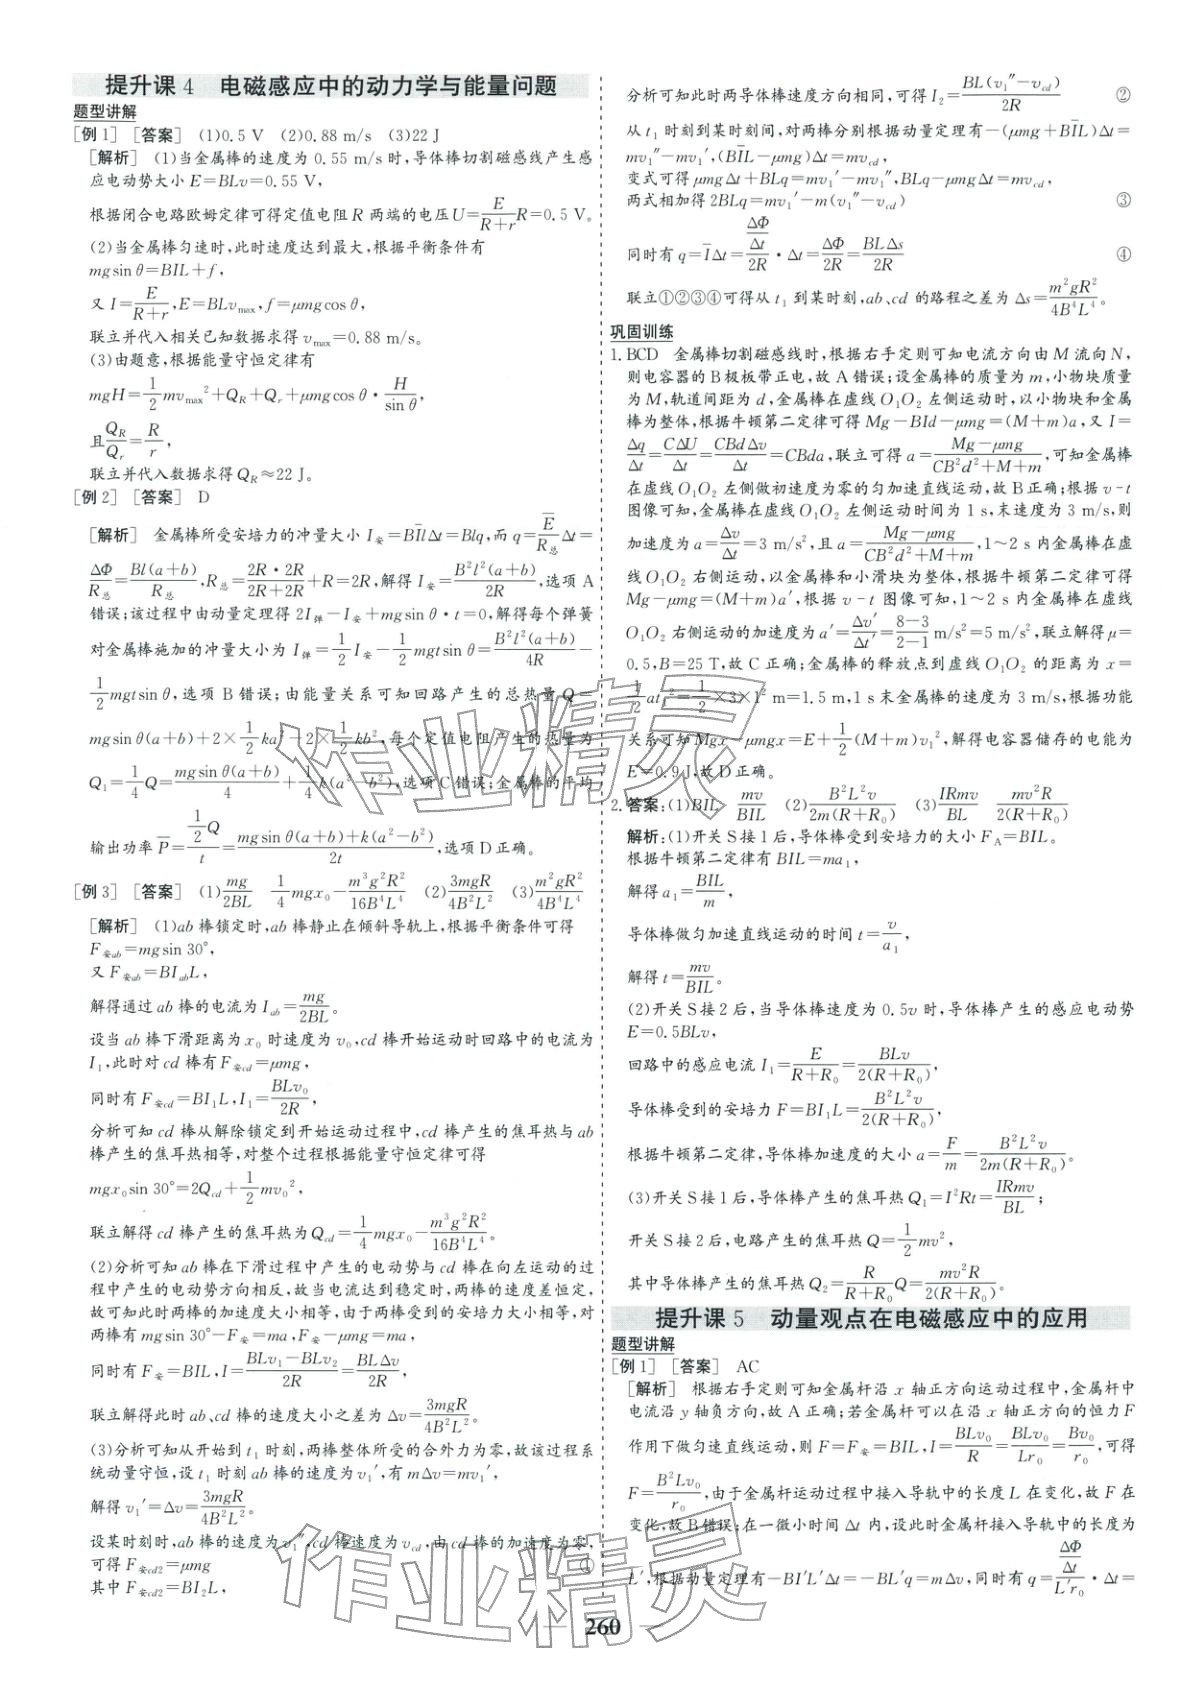 提升课 4　电磁感应中的动力学与能量问题
题型讲解
[例 1]　[答案]　(1)0.5 V　(2)0.88 m/s　(3)22 J
[解析]　(1)当金属棒的速度为 0.55 m/s 时,导体棒切割磁感线产生感
应电动势大小 E=BLv=0.55 V,
根据闭合电路欧姆定律可得定值电阻 R 两端的电压U=E/(R+r)R=0.5 V。
(2)当金属棒匀速时,此时速度达到最大,根据平衡条件有
mgsin θ=BIL+f,
又 I=E/(R+r),E=BLv_max,f=μmgcos θ,
联立并代入相关已知数据求得 v_max=0.88 m/s。
(3)由题意,根据能量守恒定律有
mgH=1/2 mv_max²+Q_R+Q_r+μmgcos θ·H/sin θ,
且Q_R/Q_r=R/r,
联立并代入数据求得 Q_R≈22 J。
[例 2]　[答案]　D
[解析]　金属棒所受安培力的冲量大小 I安=BI̅lΔt=Blq,而 q=E̅/R总 Δt=
ΔΦ/R总=Bl(a+b)/R总,R总=2R·2R/(2R+2R)+R=2R,解得 I安=B²l²(a+b)/2R,选项 A
错误;该过程中由动量定理得 2I弹-I安+mgsin θ·t=0,解得每个弹簧
对金属棒施加的冲量大小为 I弹=1/2 I安-1/2 mgtsin θ=B²l²(a+b)/4R-
1/2 mgtsin θ,选项 B 错误;由能量关系可知回路产生的总热量 Q=
mgsin θ(a+b)+2×1/2 ka²-2×1/2 kb²,每个定值电阻产生的热量为
Q₁=1/4 Q=mgsin θ(a+b)/4+1/4 k(a²-b²),选项 C 错误;金属棒的平均
输出功率 P̅=(1/2 Q)/t=[mgsin θ(a+b)+k(a²-b²)]/2t,选项 D 正确。
[例 3]　[答案]　(1)mg/2BL　1/4 mgx₀-m³g²R²/16B⁴L⁴　(2)3mgR/4B²L²　(3)m²gR²/4B⁴L⁴
[解析]　(1)ab 棒锁定时,ab 棒静止在倾斜导轨上,根据平衡条件可得
F安ab=mgsin 30°,
又 F安ab=BI_abL,
解得通过 ab 棒的电流为 I_ab=mg/2BL。
设当 ab 棒下滑距离为 x₀ 时速度为 v₀,cd 棒开始运动时回路中的电流为
I₁,此时对 cd 棒有 F安cd=μmg,
同时有 F安cd=BI₁L,I₁=BLv₀/2R,
分析可知 cd 棒从解除锁定到开始运动过程中,cd 棒产生的焦耳热与 ab
棒产生的焦耳热相等,对整个过程根据能量守恒定律可得
mgx₀sin 30°=2Q_cd+1/2 mv₀²,
联立解得 cd 棒产生的焦耳热为 Q_cd=1/4 mgx₀-m³g²R²/16B⁴L⁴。
(2)分析可知 ab 棒在下滑过程中产生的电动势与 cd 棒在向左运动的过
程中产生的电动势方向相反,故当电流达到稳定时,两棒的速度差恒定,
故可知此时两棒的加速度大小相等,由于两棒受到的安培力大小相等,对
两棒有 mgsin 30°-F安=ma,F安-μmg=ma,
同时有 F安=BIL,I=(BLv₁-BLv₂)/2R=BLΔv/2R,
联立解得此时 ab、cd 棒的速度大小之差为 Δv=3mgR/4B²L²。
(3)分析可知从开始到 t₁ 时刻,两棒整体所受的合外力为零,故该过程系
统动量守恒,设 t₁ 时刻 ab 棒的速度为 v₁′,有 mΔv=mv₁′,
解得 v₁′=Δv=3mgR/4B²L²。
设某时刻时,ab 棒的速度为v₁″,cd 棒速度为 v_cd,由 cd 棒的加速度为零,
可得 F安cd2=μmg　①
其中 F安cd2=BI₂L,
分析可知此时两导体棒速度方向相同,可得 I₂=BL(v₁″-v_cd)/2R　②
从 t₁ 时刻到某时刻间,对两棒分别根据动量定理有-(μmg+BI̅L)Δt=
mv₁″-mv₁′,(BI̅L-μmg)Δt=mv_cd,
变式可得 μmgΔt+BLq=mv₁′-mv₁″,BLq-μmgΔt=mv_cd,
两式相加得 2BLq=mv₁′-m(v₁″-v_cd)　③
同时有 q=I̅Δt=(ΔΦ/Δt)/2R·Δt=ΔΦ/2R=BLΔs/2R　④
联立①②③④可得从 t₁ 到某时刻,ab、cd 的路程之差为 Δs=m²gR²/4B⁴L⁴。
巩固训练
1. BCD　金属棒切割磁感线时,根据右手定则可知电流方向由 M 流向 N,
则电容器的 B 极板带正电,故 A 错误;设金属棒的质量为 m,小物块质量
为 M,轨道间距为 d,金属棒在虚线 O₁O₂ 左侧运动时,以小物块和金属
棒为整体,根据牛顿第二定律可得 Mg-BId-μmg=(M+m)a,又 I=
Δq/Δt=CΔU/Δt=CBdΔv/Δt=CBda,联立可得 a=(Mg-μmg)/(CB²d²+M+m),可知金属棒
在虚线 O₁O₂ 左侧做初速度为零的匀加速直线运动,故 B 正确;根据 v-t
图像可知,金属棒在虚线 O₁O₂ 左侧运动时间为 1 s,末速度为 3 m/s,则
加速度为 a=Δv/Δt=3 m/s²,且 a=(Mg-μmg)/(CB²d²+M+m),1~2 s 内金属棒在虚
线 O₁O₂ 右侧运动,以金属棒和小滑块为整体,根据牛顿第二定律可得
Mg-μmg=(M+m)a′,根据 v-t 图像可知,1~2 s 内金属棒在虚线
O₁O₂ 右侧运动的加速度为 a′=Δv′/Δt′=(8-3)/(2-1) m/s²=5 m/s²,联立解得 μ=
0.5,B=25 T,故 C 正确;金属棒的释放点到虚线 O₁O₂ 的距离为 x=
1/2 at₁²=1/2×3×1² m=1.5 m,1 s 末金属棒的速度为 3 m/s,根据功能
关系可知 Mgx-μmgx=E+1/2(M+m)v₁²,解得电容器储存的电能为
E=0.9 J,故 D 正确。
2. 答案:(1)BIL　mv/BIL　(2)B²L²v/2m(R+R₀)　(3)IRmv/BL　mv²R/2(R+R₀)
解析:(1)开关 S 接 1 后,导体棒受到安培力的大小 F_A=BIL。
根据牛顿第二定律有 BIL=ma₁,
解得 a₁=BIL/m,
导体棒做匀加速直线运动的时间 t=v/a₁,
解得 t=mv/BIL。
(2)开关 S 接 2 后,当导体棒速度为 0.5v 时,导体棒产生的感应电动势
E=0.5BLv,
回路中的感应电流 I₁=E/(R+R₀)=BLv/2(R+R₀),
导体棒受到的安培力 F=BI₁L=B²L²v/2(R+R₀),
根据牛顿第二定律,导体棒加速度的大小 a=F/m=B²L²v/2m(R+R₀)。
(3)开关 S 接 1 后,导体棒产生的焦耳热 Q₁=I²Rt=IRmv/BL;
开关 S 接 2 后,电路产生的焦耳热 Q=1/2 mv²,
其中导体棒产生的焦耳热 Q₂=R/(R+R₀)Q=mv²R/2(R+R₀)。
提升课 5　动量观点在电磁感应中的应用
题型讲解
[例 1]　[答案]　AC
[解析]　根据右手定则可知金属杆沿 x 轴正方向运动过程中,金属杆中
电流沿 y 轴负方向,故 A 正确;若金属杆可以在沿 x 轴正方向的恒力 F
作用下做匀速直线运动,则 F=F安=BIL,I=BLv₀/R=BLv₀/Lr₀=Bv₀/r₀,可得
F=B²Lv₀/r₀,由于金属杆运动过程中接入导轨中的长度 L 在变化,故 F 在
变化,故 B 错误;在一微小时间 Δt 内,设此时金属杆接入导轨中的长度为
L′,根据动量定理有-BI′L′Δt=-BL′q=mΔv,同时有 q=(ΔΦ/Δt)/L′r₀·Δt=
260
作业精灵
作业精灵